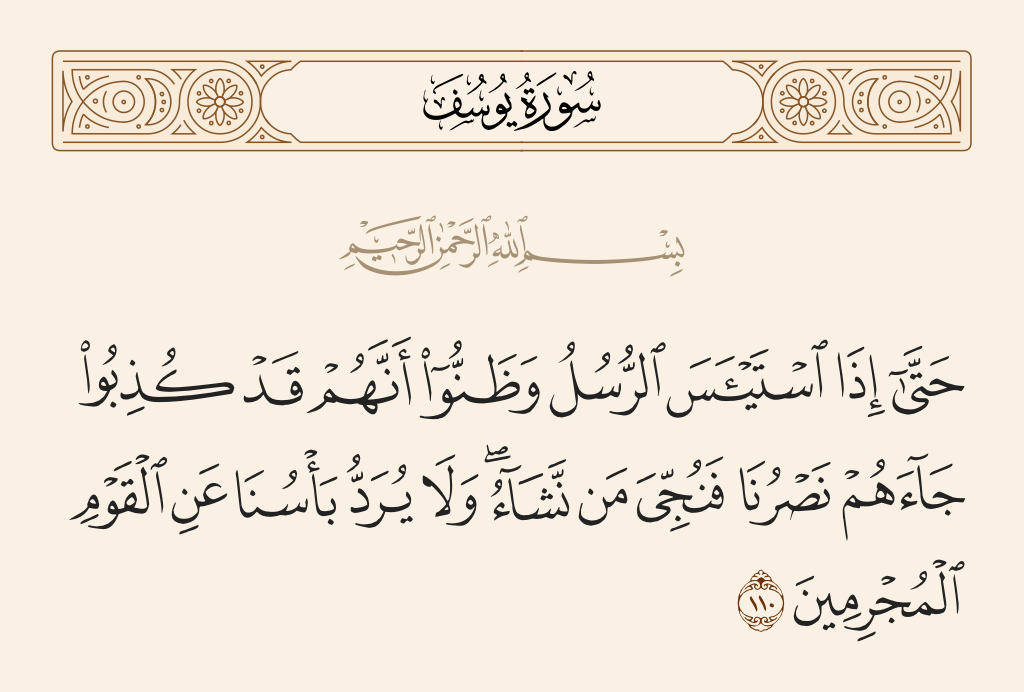 سُورَةُ يُوسُفَ
بِسْمِ ٱللَّهِ ٱلرَّحْمَٰنِ ٱلرَّحِيمِ
حَتَّىٰٓ إِذَا ٱسْتَيْـَٔسَ ٱلرُّسُلُ وَظَنُّوٓا۟ أَنَّهُمْ قَدْ كُذِبُوا۟
جَآءَهُمْ نَصْرُنَا فَنُجِّىَ مَن نَّشَآءُ ۖ وَلَا يُرَدُّ بَأْسُنَا عَنِ ٱلْقَوْمِ
ٱلْمُجْرِمِينَ ١١٠